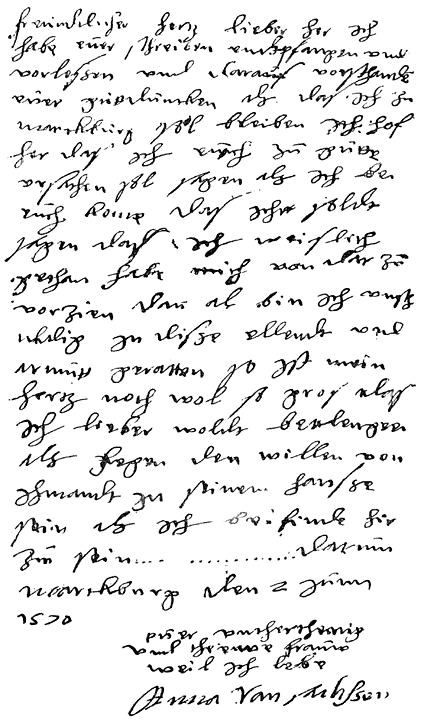 freundtlicher hertz lieber her ich
habe euer schreiben entpfangen und
vorlessen und daraus vorsthande
euer guedüncken als das ich zu
marckburg sol bleiben ich hof
her das ich euch zu
ursachen sol sagen als ich bei
euch kome das selbst
sagen das ich weislich
gethan habe mich von dar zu
vorzien dan als bin ich
in disse ellendt und
armutt geratten so ist mein
hertz noch wol so gros das
ich lieber woldt
als gegen den willen von
ihmandt in seinem hausse
sein als ich befinde hir
zu sein.... ............datum
marckburg den 2 Junii
1570
euer untherthenig
und threuwe frauw
weil ich lebe
Anna Van sachssen